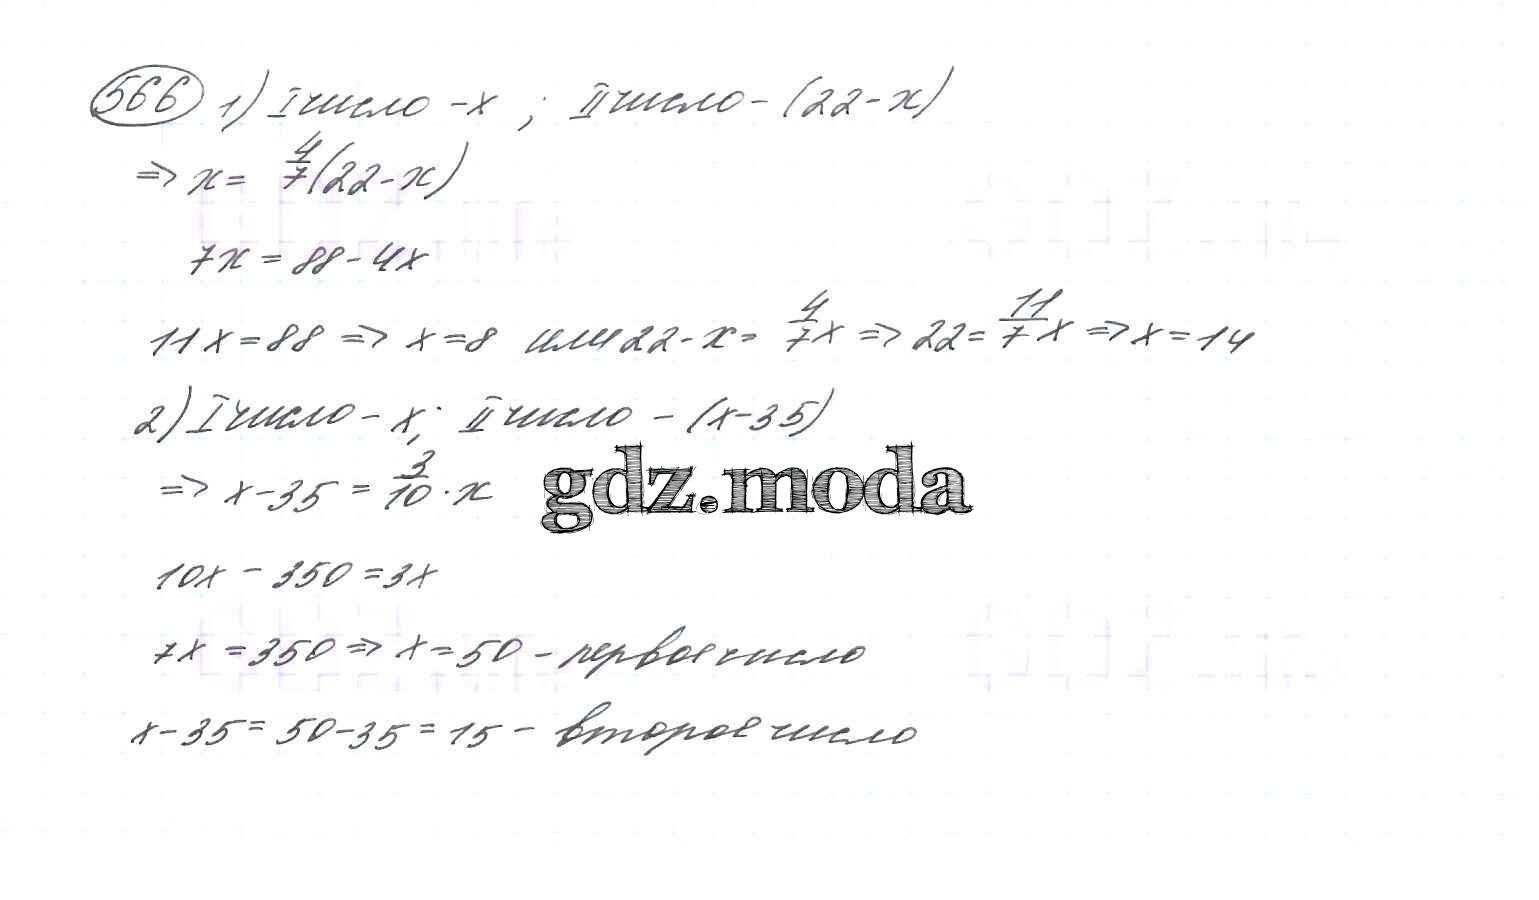 566 1) I число - x ; II число - (22 - x)
=> x = 4/7 (22 - x)
7x = 88 - 4x
11x = 88 => x = 8 или 22 - x = 4/7 x => 22 = 11/7 x => x = 14
2) I число - x; II число - (x - 35)
=> x - 35 = 3/10 · x
gdz.moda
10x - 350 = 3x
7x = 350 => x = 50 - первое число
x - 35 = 50 - 35 = 15 - второе число